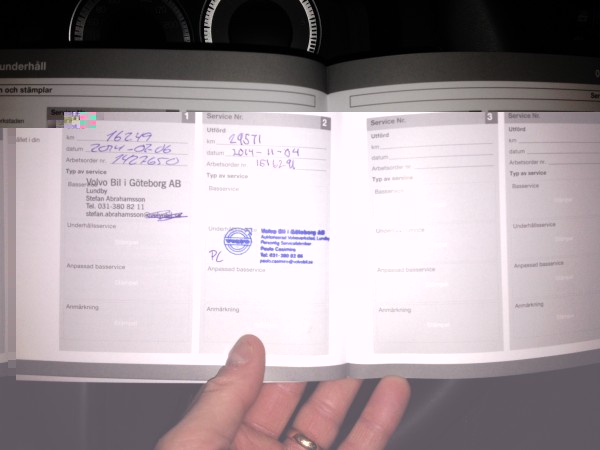 underhåll
n och stämplar
Service Nr.
1
km 16249
datum 2014-02-06
Arbetsorder nr. 1422650
Typ av service
Basservice
Volvo Bil i Göteborg AB
Lundby
Stefan Abrahamsson
Tel. 031-380 82 11
stefan.abrahamsson
Underhållsservice
Anpassad basservice
Anmärkning
Service Nr.
2
Utförd
km 29571
datum 2014-11-04
Arbetsorder nr.
Typ av service
Basservice
Volvo Bil i Göteborg AB
Auktoriserad Volvoverkstad, Lundby
Personlig Servicetekniker
Paulo Casimiro
Tel. 031-380 82 86
VOLVO
PC
Anpassad basservice
Anmärkning
Service Nr.
3
Utförd
km
datum
Arbetsorder nr.
Typ av service
Basservice
Underhållsservice
Anpassad basservice
Anmärkning
Service Nr.
Utförd
km
datum
Arbetsorder nr.
Typ av service
Basservice
Underhållsservice
Anpassad basservice
Anmärkning